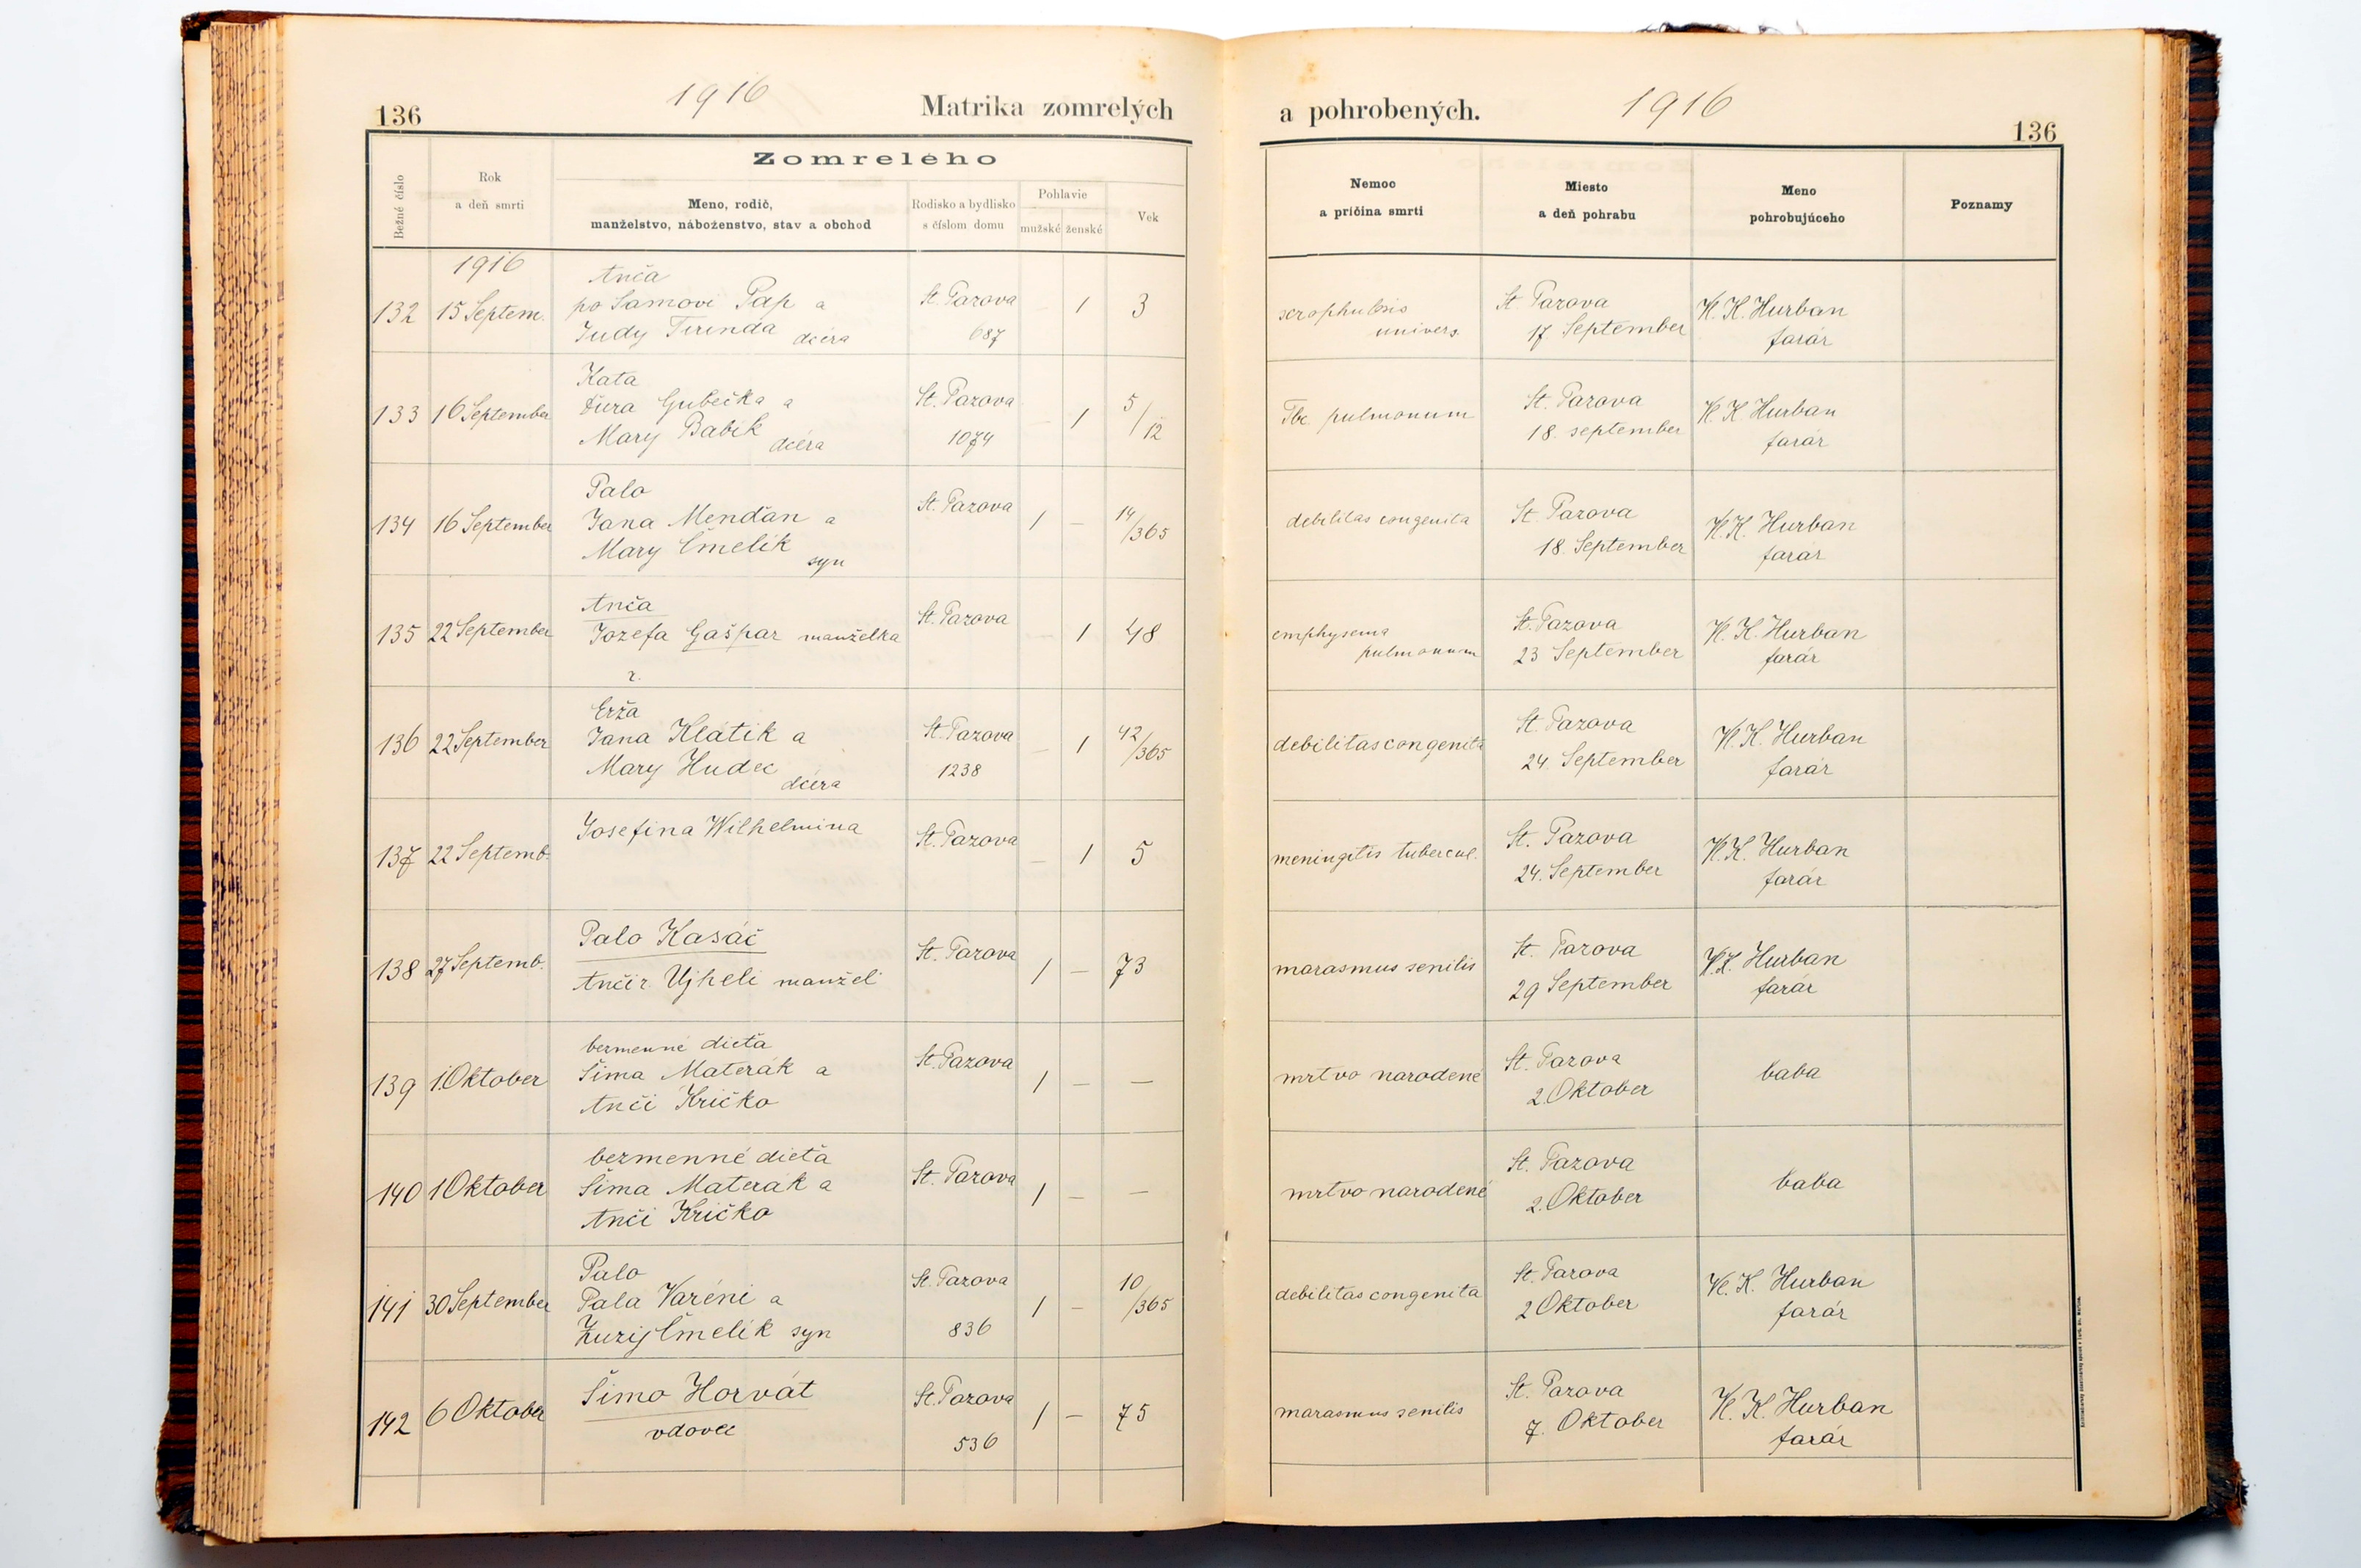 136
1916
Matrika zomrelých
Zomrelého
Bežné číslo
Rok
a deň smrti
Meno, rodič,
manželstvo, náboženstvo, stav a obchod
Rodisko a bydlisko
s číslom domu
Pohlavie
mužské ženské
Vek
1916
132 15 Septem.
Anča
po Samovi Pap a
Judy Tirinda dcéra
St. Pazova
687
1 3
133 16 September
Kata
Ďura Gubečka a
Mary Babik dcéra
St. Pazova
1074
1 5/12
134 16 September
Palo
Jana Mendǎn a
Mary Čmelik
syn
St. Pazova
1 – 14/365
135 22 September
Anča
Jozefa Gašpar manželka
r.
St. Pazova
1 48
136 22 September
Erža
Jana Klátik a
Mary Hudec
dcéra
St. Pazova
1238
– 1 42/365
137 22 Septemb.
Josefina Wilhelmina
St. Pazova
– 1 5
138 27 Septemb.
Palo Kasáč
Anči r. Ujheli manžel
St. Pazova
1 – 73
139 1. Oktober
bezmenné dieťa
Šima Materák a
Anči Kričko
St. Pazova
1 – –
140 1 Oktober
bezmenné dieťa
Šima Materák a
Anči Kričko
St. Pazova
1 – –
141 30 September
Palo
Pala Varéni a
Zuzi Čmelik syn
St. Pazova
836
1 – 10/365
142 6 Oktober
Šimo Horvát
vdovec
St. Pazova
536
1 – 75
a pohrobených.
1916
136
Nemoc
a príčina smrti
Miesto
a deň pohrabu
Meno
pohrobujúceho
Poznamy
scrophulosis
univers.
St. Pazova
17 September
Vl. K. Hurban
farár
Tbc. pulmonum
St. Pazova
18. september
Vl. K. Hurban
farár
debilitas congenita
St. Pazova
18. September
Vl. K. Hurban
farár
emphysema
pulmonum
St. Pazova
23 September
Vl. K. Hurban
farár
debilitas congenita
St. Pazova
24. September
Vl. K. Hurban
farár
meningitis tubercul.
St. Pazova
24. September
Vl. K. Hurban
farár
marasmus senilis
St. Pazova
29 September
Vl. K. Hurban
farár
mrtvo narodené
St. Pazova
2. Oktober
baba
mrtvo narodené
St. Pazova
2. Oktober
baba
debilitas congenita
St. Pazova
2 Oktober
Vl. K. Hurban
farár
marasmus senilis
St. Pazova
7. Oktober
Vl. K. Hurban
farár